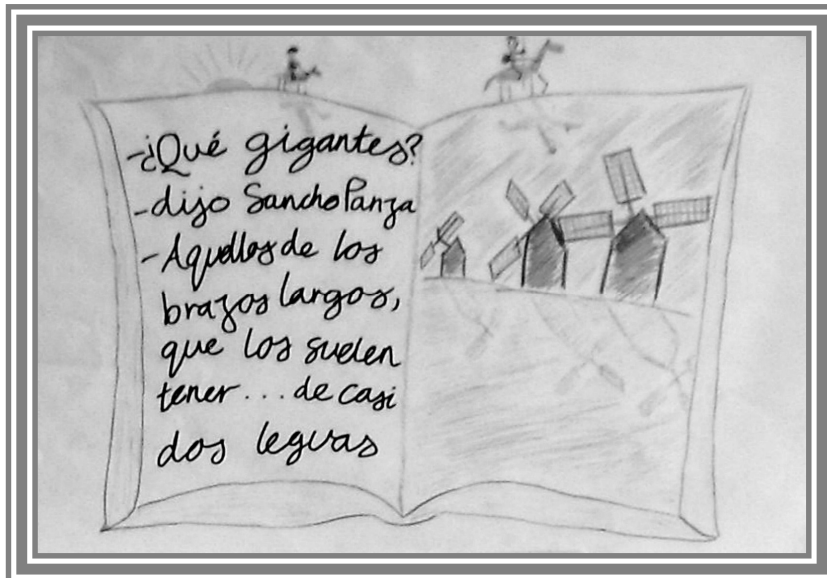 -¿Qué gigantes?
-dijo Sancho Panza
-Aquellos de los
brazos largos,
que los suelen
tener... de casi
dos leguas